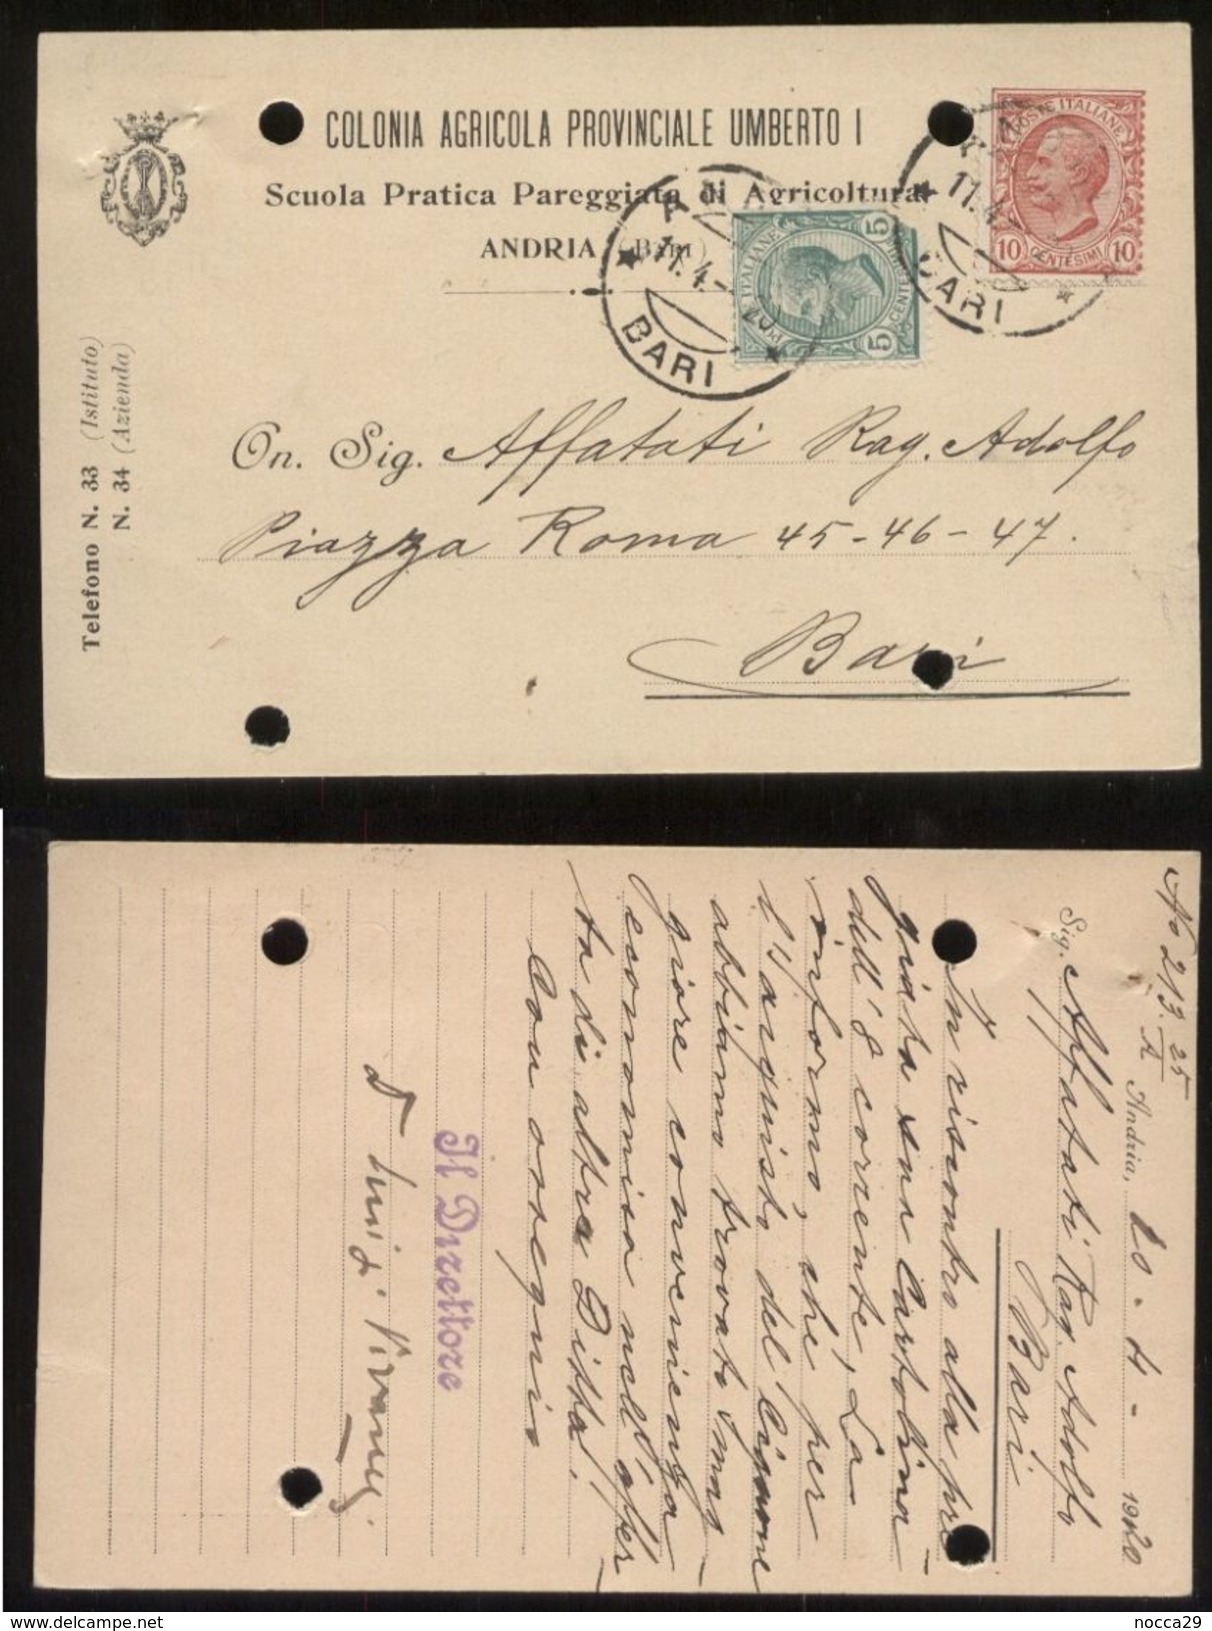 COLONIA AGRICOLA PROVINCIALE UMBERTO I
Scuola Pratica Pareggiata di Agricoltura
ANDRIA (BARI)
POSTE ITALIANE
10 CENTESIMI 10
ITALIANE
5 CENTESIMI 5
11.4.
BARI
11.4.
BARI
Telefono N. 33 (Istituto)
N. 34 (Azienda)
On. Sig. Affatati Rag. Adolfo
Piazza Roma 45-46-47.
Bari
No 213. 25/A Andria, 10 - 4 - 1920
Sig. Affatati Rag. Adolfo
Bari
In riscontro alla pre
giata sua Cartolina
dell'8 corrente, La
informo, che per
l'acquisto del
abbiamo trovato mag-
giore convenienza
economia nell'offer
ta di altra Ditta.
Con ossequio
Il Direttore
Luigi
nocca29